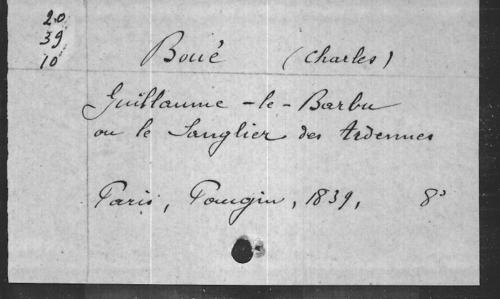 20
39
10
Boué (Charles)
Guillaume-le-Barbu
ou le Sanglier des Ardennes
Paris, Pougin, 1839, 8°